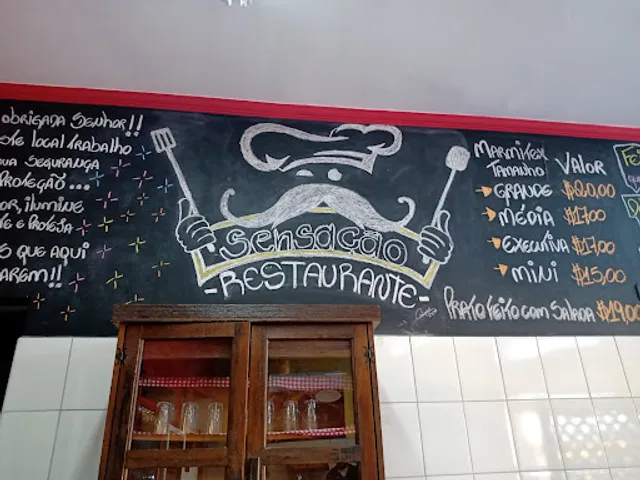 Obrigada Senhor!!
local trabalho
segurança
proteção...
ilumine
e proteja
que aqui
!!
Sensação
-Restaurante-
Marmitex
Tamanho Valor
Grande $20,00
Média $17,00
Executiva $17,00
Mini $15,00
Prato feito com Salada $19,00